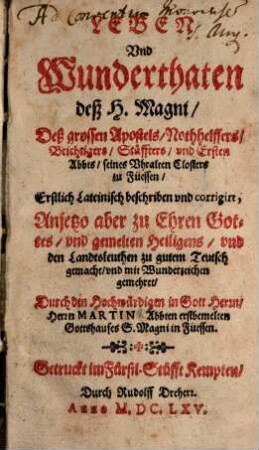 Ad Conventum
Aug.
LEBEN
Vnd
Wunderthaten
deß H. Magni/
Deß grossen Apostels/Nothhelffers/
Beichtigers/Stüffters/vnd Ersten
Abbts/seines Vhralten Closters
zu Füessen/
Erstlich Lateinisch beschriben vnd corrigirt,
Anjetzo aber zu Ehren Got-
tes/vnd gemelten Heiligens/vnd
den Landtsleuthen zu gutem Teutsch
gemacht/vnd mit Wunderzeichen
gemehret/
Durch den Hochwürdigen in Gott Herrn/
Herrn MARTIN Abbten erstbemelten
Gottshauses S. Magni in Füessen.
Getruckt im Fürstl-Stüfft Kempten/
Durch Rudolff Dreherr.
Anno M. DC. LXV.